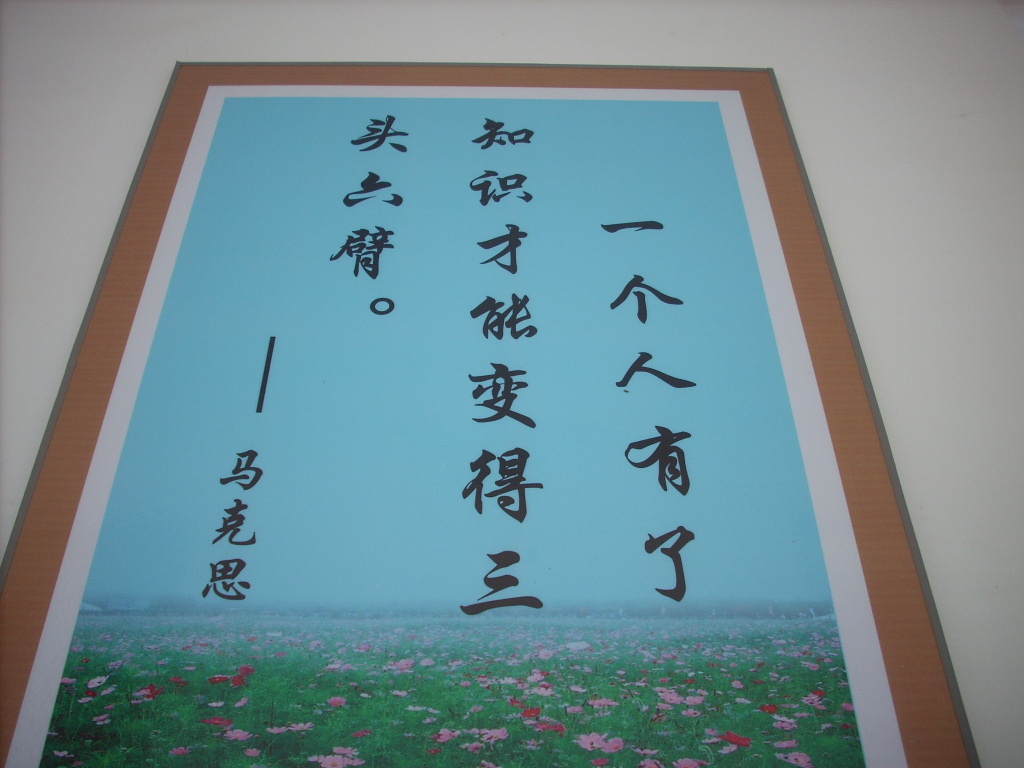 一个人有了
知识才能变得三
头六臂。
—马克思